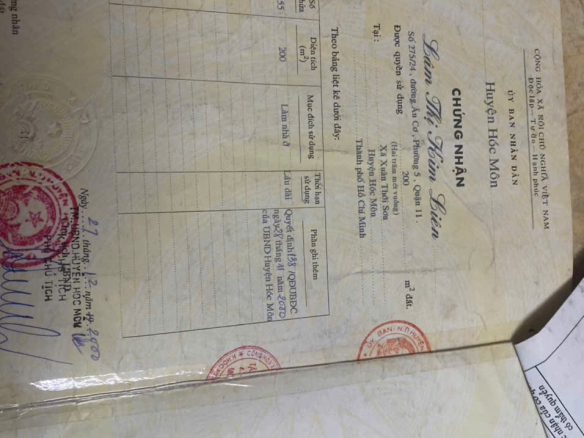 CỘNG HÒA XÃ HỘI CHỦ NGHĨA VIỆT NAM
Độc lập - Tự do - Hạnh phúc
ỦY BAN NHÂN DÂN
Huyện Hóc Môn
CHỨNG NHẬN
Lâm Thị Kim Liên
Số 275/24, đường Âu Cơ, Phường 5, Quận 11.
Được quyền sử dụng 200 m² đất.
(Hai trăm mét vuông)
Tại: Xã Xuân Thới Sơn
Huyện Hóc Môn
Thành phố Hồ Chí Minh
Theo bảng liệt kê dưới đây:
Số
thửa
Diện tích
(m²)
Mục đích sử dụng
Thời hạn
sử dụng
Phần ghi thêm
55
200
Làm nhà ở
Lâu dài
Quyết định 138/QĐUBĐC
ngày 21 tháng 11 năm 2000
của UBND Huyện Hóc Môn
Ngày 21 tháng 12 năm 2000
TM.UBND HUYỆN HÓC MÔN
CHỦ TỊCH
có thẩm quyền